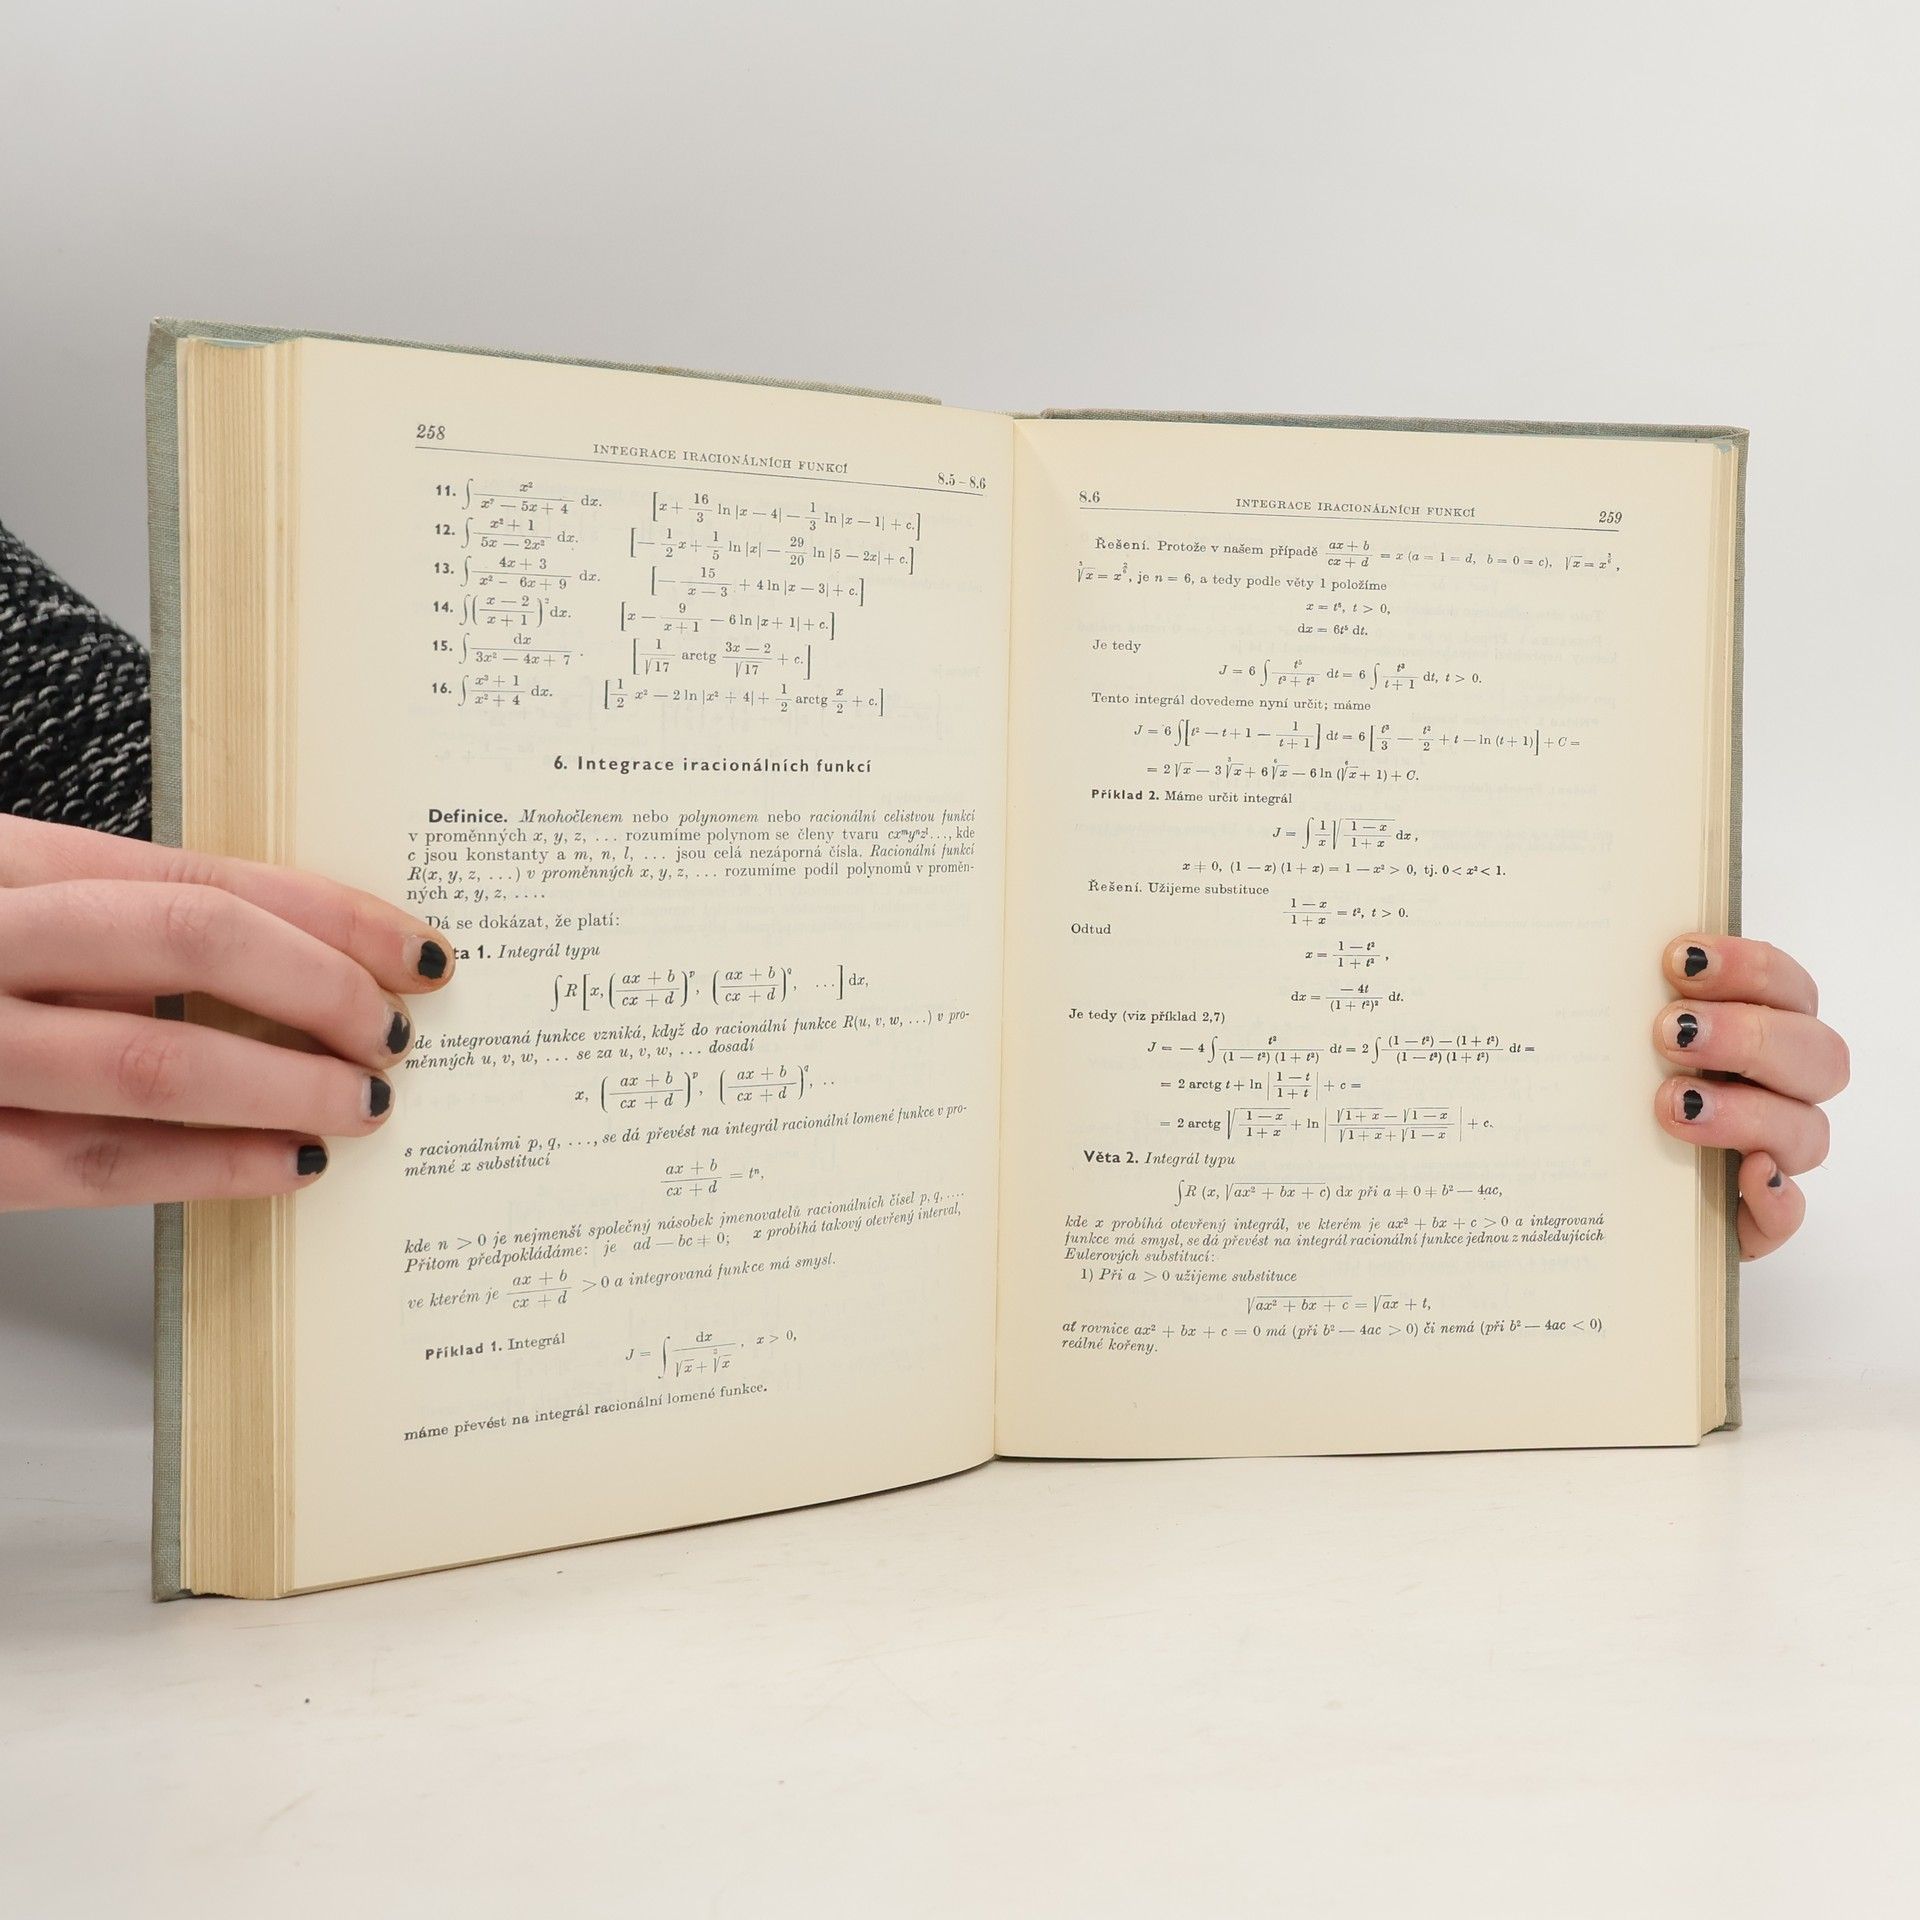 258
INTEGRACE IRACIONÁLNÍCH FUNKCÍ
8.5 – 8.6
11. ∫ x²/(x² — 5x + 4) dx. [x + 16/3 ln |x — 4| — 1/3 ln |x — 1| + c.]
12. ∫ (x² + 1)/(5x — 2x²) dx. [— 1/2 x + 1/5 ln |x| — 29/20 ln |5 — 2x| + c.]
13. ∫ (4x + 3)/(x² — 6x + 9) dx. [— 15/(x — 3) + 4 ln |x — 3| + c.]
14. ∫ ((x — 2)/(x + 1))² dx. [x — 9/(x + 1) — 6 ln |x + 1| + c.]
15. ∫ dx/(3x² — 4x + 7) . [1/√17 arctg (3x — 2)/√17 + c.]
16. ∫ (x³ + 1)/(x² + 4) dx. [1/2 x² — 2 ln |x² + 4| + 1/2 arctg x/2 + c.]
6. Integrace iracionálních funkcí
Definice. Mnohočlenem nebo polynomem nebo racionální celistvou funkcí
v proměnných x, y, z, ... rozumíme polynom se členy tvaru cxᵐyⁿzˡ..., kde
c jsou konstanty a m, n, l, ... jsou celá nezáporná čísla. Racionální funkcí
R(x, y, z, ...) v proměnných x, y, z, ... rozumíme podíl polynomů v proměn-
ných x, y, z, ....
Dá se dokázat, že platí:
ta 1. Integrál typu
∫ R [x, ((ax + b)/(cx + d))ᵖ, ((ax + b)/(cx + d))^q, ...] dx,
de integrovaná funkce vzniká, když do racionální funkce R(u, v, w, ...) v pro-
měnných u, v, w, ... se za u, v, w, ... dosadí
x, ((ax + b)/(cx + d))ᵖ, ((ax + b)/(cx + d))^q, ..
s racionálními p, q, ..., se dá převést na integrál racionální lomené funkce v pro-
měnné x substitucí
(ax + b)/(cx + d) = tⁿ,
kde n > 0 je nejmenší společný násobek jmenovatelů racionálních čísel p, q, ....
Přitom předpokládáme: je ad — bc ≠ 0; x probíhá takový otevřený interval,
ve kterém je (ax + b)/(cx + d) > 0 a integrovaná funkce má smysl.
Příklad 1. Integrál
J = ∫ dx/(√x + ³√x) , x > 0,
máme převést na integrál racionální lomené funkce.
8.6
INTEGRACE IRACIONÁLNÍCH FUNKCÍ
259
Řešení. Protože v našem případě (ax + b)/(cx + d) = x (a = 1 = d, b = 0 = c), √x = x^(3/6),
³√x = x^(2/6), je n = 6, a tedy podle věty 1 položíme
x = t⁶, t > 0,
dx = 6t⁵ dt.
Je tedy
J = 6 ∫ t⁵/(t³ + t²) dt = 6 ∫ t³/(t + 1) dt, t > 0.
Tento integrál dovedeme nyní určit; máme
J = 6 ∫[t² — t + 1 — 1/(t + 1)] dt = 6 [t³/3 — t²/2 + t — ln (t + 1)] + C =
= 2 √x — 3 ³√x + 6 ⁶√x — 6 ln (⁶√x + 1) + C.
Příklad 2. Máme určit integrál
J = ∫ 1/x √((1 — x)/(1 + x)) dx,
x ≠ 0, (1 — x) (1 + x) = 1 — x² > 0, tj. 0 < x² < 1.
Řešení. Užijeme substituce
(1 — x)/(1 + x) = t², t > 0.
Odtud
x = (1 — t²)/(1 + t²),
dx = — 4t/(1 + t²)² dt.
Je tedy (viz příklad 2,7)
J = — 4 ∫ t²/((1 — t²) (1 + t²)) dt = 2 ∫ ((1 — t²) — (1 + t²))/((1 — t²) (1 + t²)) dt =
= 2 arctg t + ln |(1 — t)/(1 + t)| + c =
= 2 arctg √((1 — x)/(1 + x)) + ln |(√(1 + x) — √(1 — x))/(√(1 + x) + √(1 — x))| + c.
Věta 2. Integrál typu
∫ R (x, √(ax² + bx + c)) dx při a ≠ 0 ≠ b² — 4ac,
kde x probíhá otevřený integrál, ve kterém je ax² + bx + c > 0 a integrovaná
funkce má smysl, se dá převést na integrál racionální funkce jednou z následujících
Eulerových substitucí:
1) Při a > 0 užijeme substituce
√(ax² + bx + c) = √ax + t,
ať rovnice ax² + bx + c = 0 má (při b² — 4ac > 0) či nemá (při b² — 4ac < 0)
reálné kořeny.